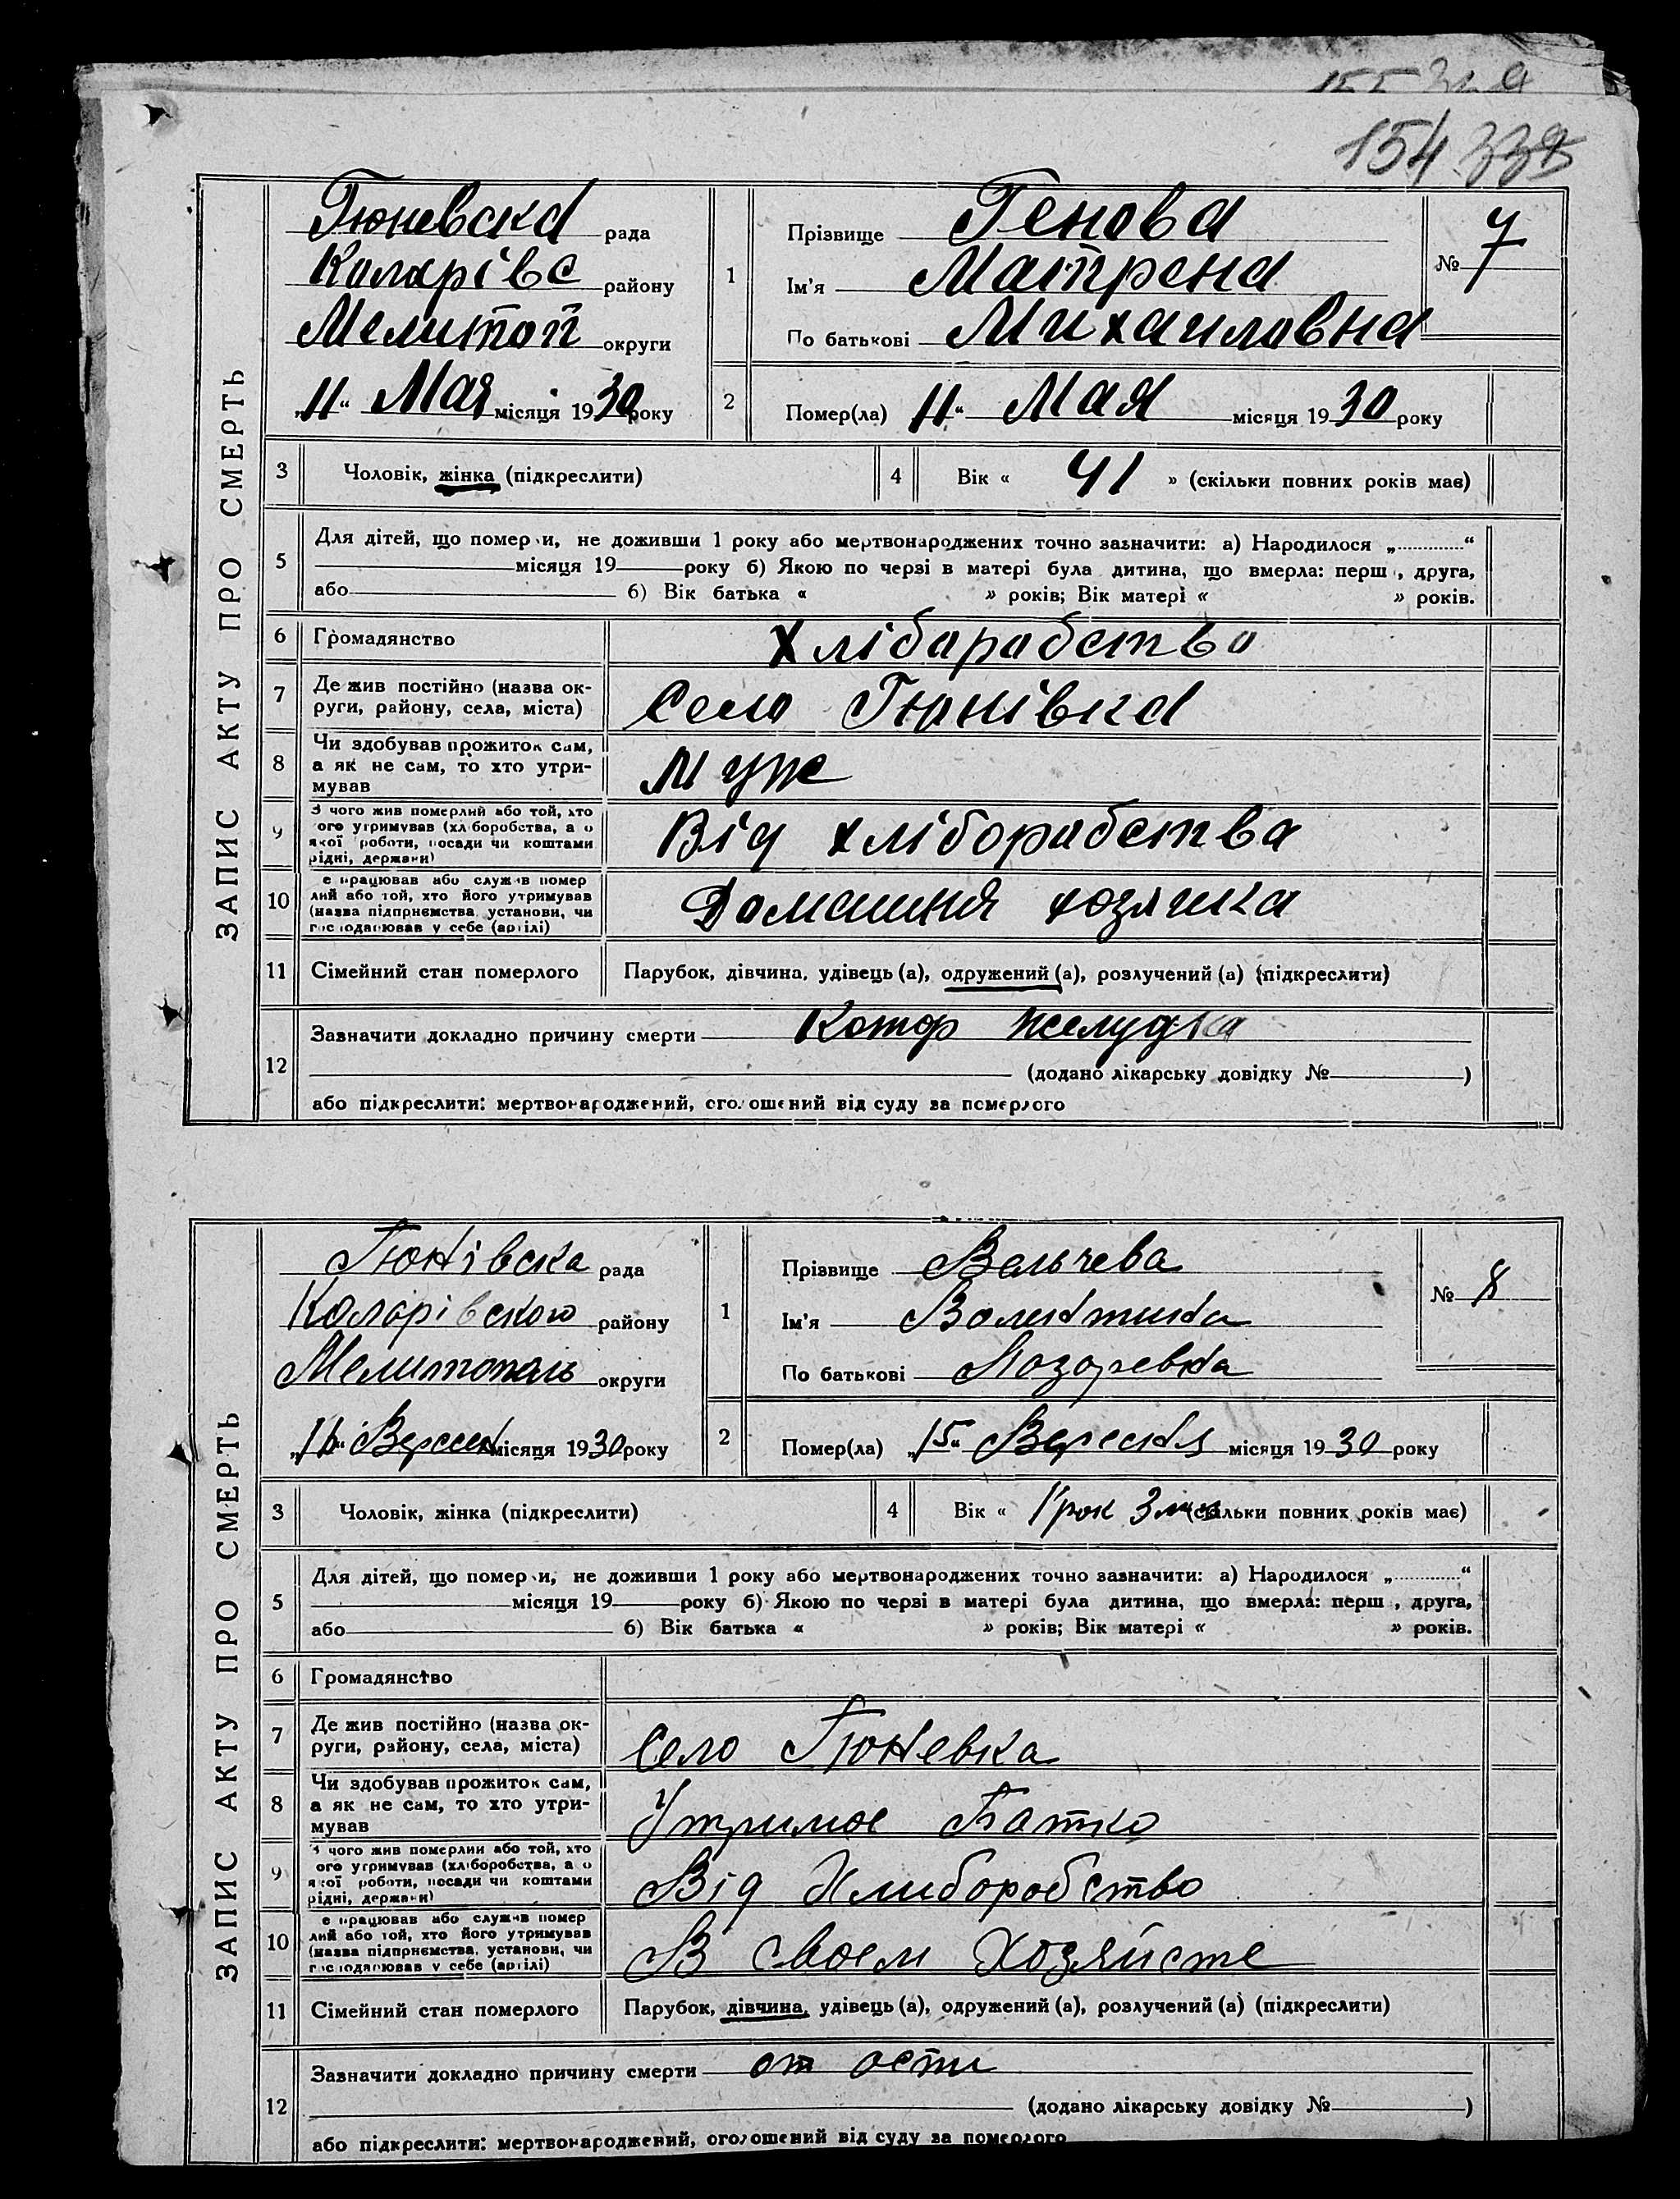 154 339
ЗАПИС АКТУ ПРО СМЕРТЬ
Гюневска рада
Коларівс району
Мелитоп округи
„11“ Мая місяця 1930 року
1
Прізвище Генова
Ім'я Матрена
По батькові Михаиловна
№ 7
2
Помер(ла) 11“ Мая місяця 1930 року
3 Чоловік, жінка (підкреслити)
4 Вік « 41 » (скільки повних років має)
5
Для дітей, що померли, не доживши 1 року або мертвонароджених точно зазначити: а) Народилося „............“
місяця 19 року б) Якою по черзі в матері була дитина, що вмерла: перш , друга,
або б) Вік батька « » років; Вік матері « » років.
6 Громадянство Хліборабство
7 Де жив постійно (назва ок-
руги, району, села, міста) Село Гюнівка
8 Чи здобував прожиток сам,
а як не сам, то хто утри-
мував Муж
9 З чого жив померлий або той, хто
ого утримував (хліборобства, а о
якої роботи, посади чи коштами
рідні, держави) Від хліборабства
10 е працював або служив помер
лий або той, хто його утримував
(назва підприємства, установи, чи
господарював у себе (артілі) Домашния хозяика
11 Сімейний стан померлого Парубок, дівчина, удівець (а), одружений (а), розлучений (а) (підкреслити)
12
Зазначити докладно причину смерти Котор желудка
(додано лікарську довідку № )
або підкреслити: мертвонароджений, оголошений від суду за померлого
ЗАПИС АКТУ ПРО СМЕРТЬ
Гюнівска рада
Коларівского району
Мелитополь округи
„16“ Вересня місяця 1930 року
1
Прізвище Вельчева
Ім'я Волинтина
По батькові Лозаревна
№ 8
2
Помер(ла) „15“ Вересня місяця 1930 року
3 Чоловік, жінка (підкреслити)
4 Вік « 1 рок 3 (скільки повних років має)
5
Для дітей, що померли, не доживши 1 року або мертвонароджених точно зазначити: а) Народилося „............“
місяця 19 року б) Якою по черзі в матері була дитина, що вмерла: перш , друга,
або б) Вік батька « » років; Вік матері « » років.
6 Громадянство
7 Де жив постійно (назва ок-
руги, району, села, міста) Село Гюневка
8 Чи здобував прожиток сам,
а як не сам, то хто утри-
мував Утримое Батко
9 З чого жив померлий або той, хто
ого утримував (хліборобства, а о
якої роботи, посади чи коштами
рідні, держави) Від Хлиборобство
10 е працював або служив помер
лий або той, хто його утримував
(назва підприємства, установи, чи
господарював у себе (артілі) В своем Хозяйсте
11 Сімейний стан померлого Парубок, дівчина, удівець (а), одружений (а), розлучений (а) (підкреслити)
12
Зазначити докладно причину смерти от ости
(додано лікарську довідку № )
або підкреслити: мертвонароджений, оголошений від суду за померлого